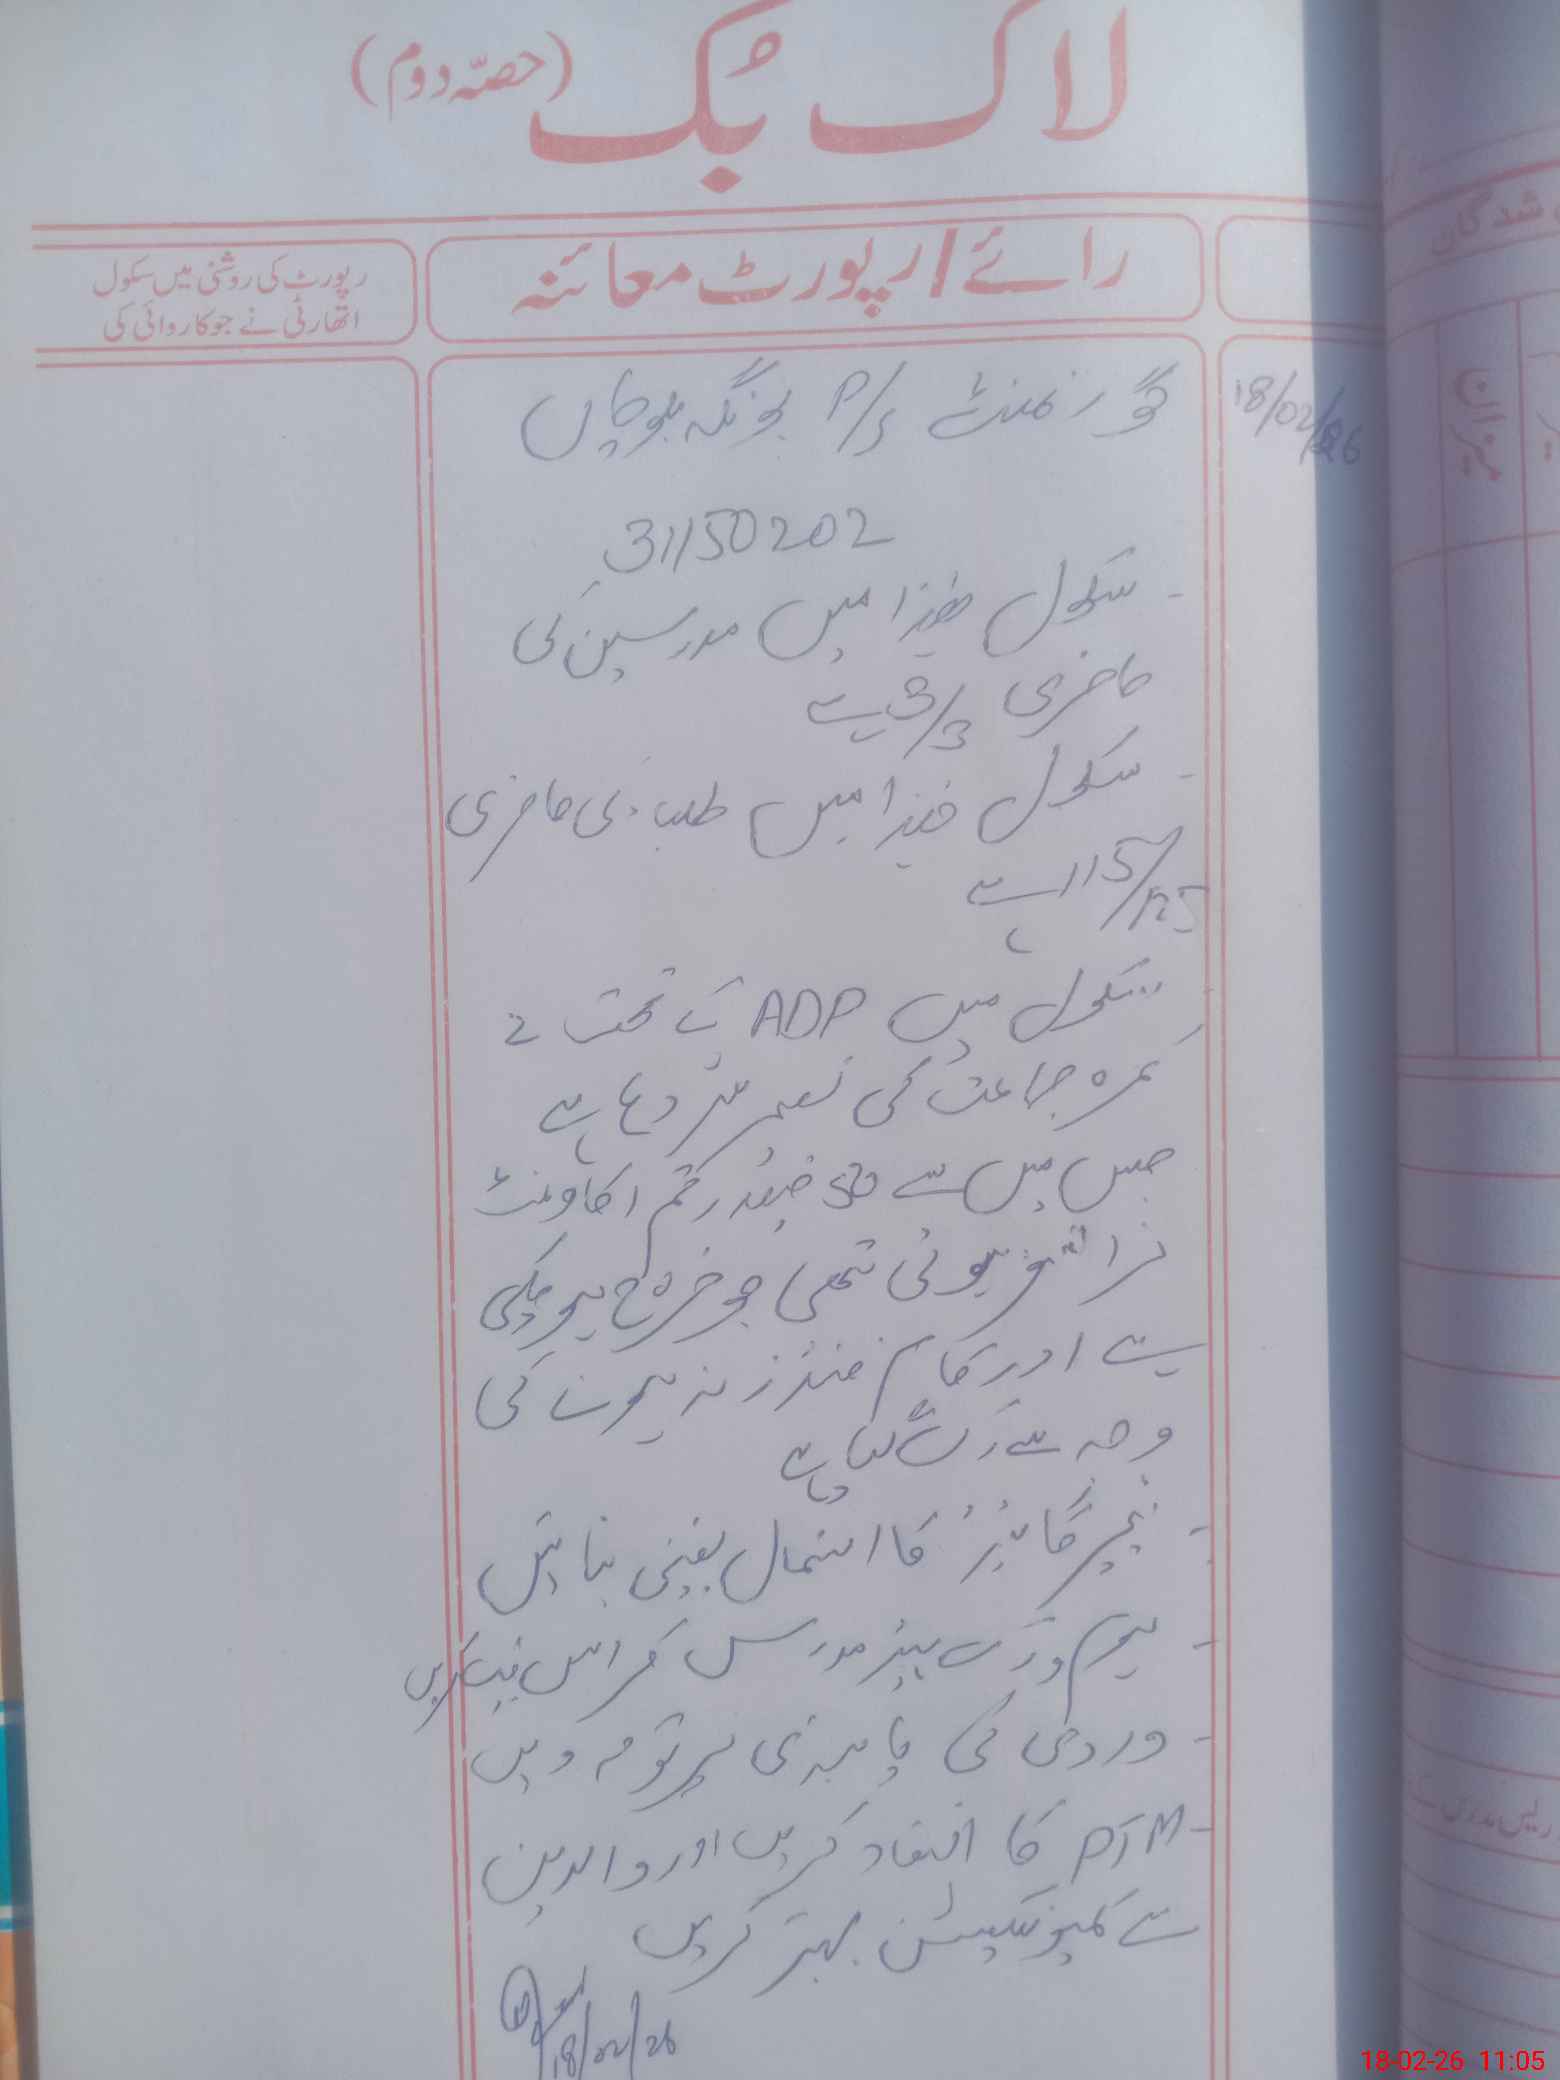 لاگ بُک (حصّہ دوم)
رائے/رپورٹ معائنہ
رپورٹ کی روشنی میں سکول
اتھارٹی نے جو کاروائی کی
18/02/26
گورنمنٹ P/S بونگہ بلوچاں
31150202
- سکول ھٰذا میں مدرسین کی
حاضری 3/3 ہے
- سکول ھٰذا میں طلباء کی حاضری
115/125 ہے
- سکول میں ADP کے تحت 2
کمرہ جماعت کی تعمیر
جس میں سے 50 فیصد رقم اکاونٹ
ٹرانسفر ہوئی تھی جو خرچ ہو چکی
ہے اور کام فنڈز نہ ہونے کی
وجہ سے رک گیا ہے
- ٹیچر گائیڈز کا استعمال یقینی بنائیں
- ہیم ورک بیسڈ مدرس کراس چیک کریں
- وردی کی پابندی پر توجہ دیں
- PTM کا انعقاد کریں اور والدین
سے کمیونیکیشن بہتر کریں
18/02/26
شدگان
میزان
18-02-26 11:05